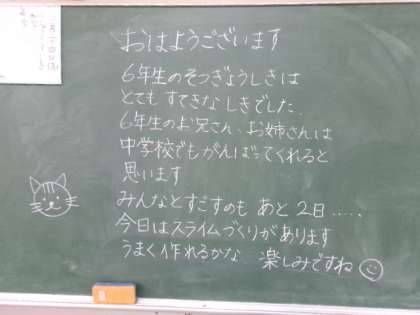 おはようございます
6年生のそつぎょうしきは
とても すてきな しきでした.
6年生のお兄さん、お姉さんは
中学校でもがんばってくれると
思います
みんなとすごすのも あと2日.....
今日はスライムづくりがあります
うまく作れるかな 楽しみですね